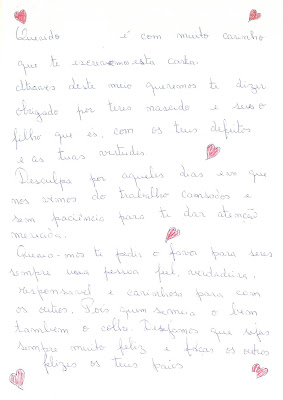 Querido é com muito carinho
que te escrevemos esta carta.
Atraves deste meio queremos te dizer
obrigado por teres nascido e seres o
filho que es, com os teus defeitos
e as tuas virtudes.
Desculpa por aqueles dias em que
nos vimos do trabalho cansados e
sem paciência para te dar atenção
merecida.
Queria-mos te pedir o favor para seres
sempre uma pessoa fiel, verdadeira,
responsavel e carinhosa para com
os outros. Pois quem semeia o bem
tambem o colhe. Desejamos que sejas
sempre muito feliz e faças os outros
felizes os teus pais